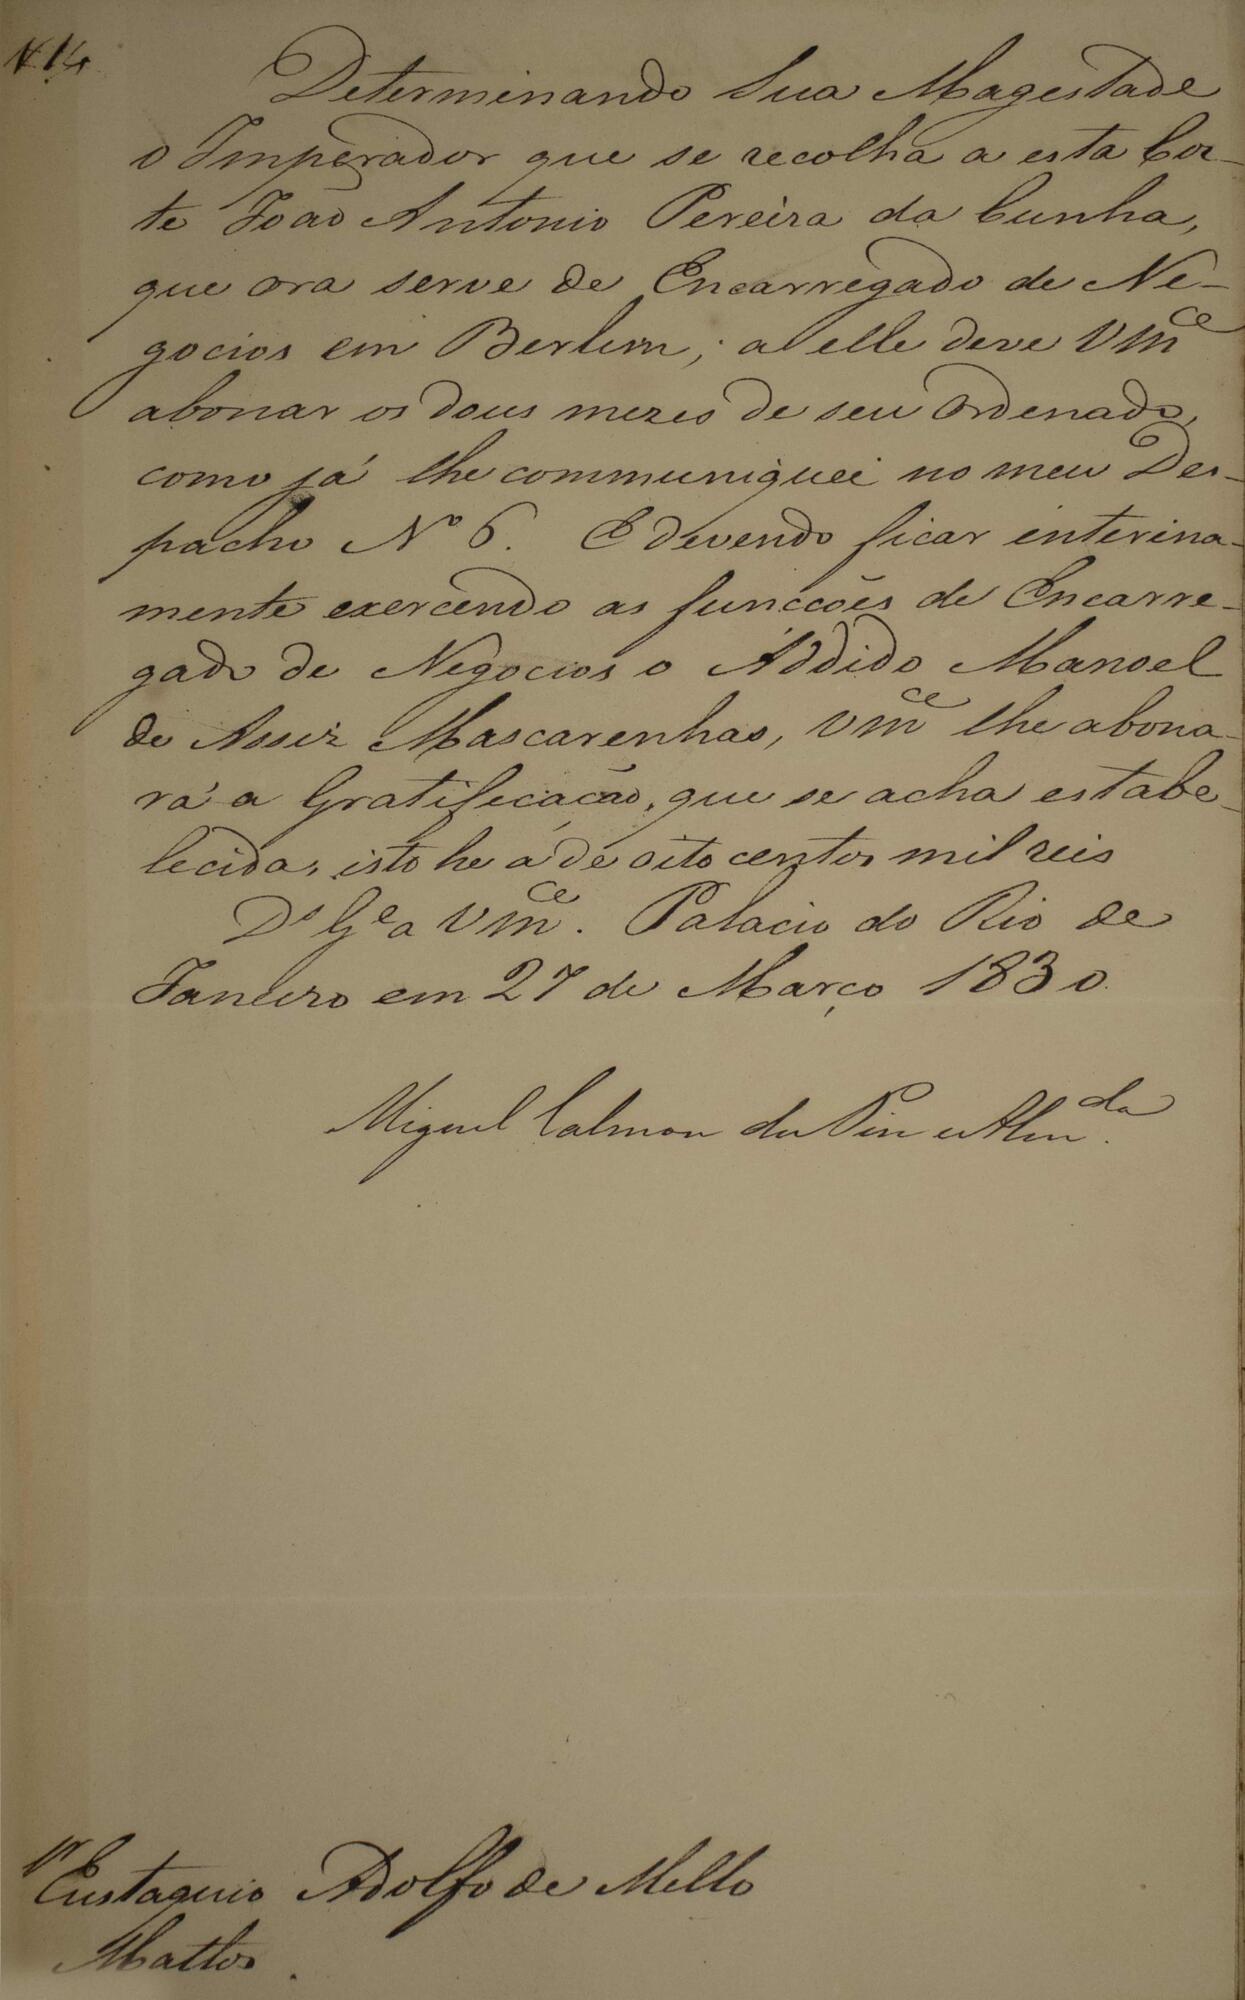 N. 14
Determinando Sua Magestade
o Imperador que se recolha a esta Cor-
te João Antonio Pereira da Cunha,
que ora serve de Encarregado de Ne-
gocios em Berlim; a elle deve Vm.ce
abonar os dous mezes de seu Ordenado,
como já lhe communiquei no meu Des-
pacho Nº 6. E devendo ficar interina-
mente exercendo as funccões de Encarre-
gado de Negocios o Addido Manoel
de Assiz Mascarenhas, Vm.ce lhe abona-
rá a Gratificação, que se acha estabe-
lecida, isto he á de oito centos mil reis
Ds Ge a Vm.ce. Palacio do Rio de
Janeiro em 27 de Março 1830.
Miguel Calmon du Pin e Alm.da
Eustaquio Adolfo de Mello
Mattos.